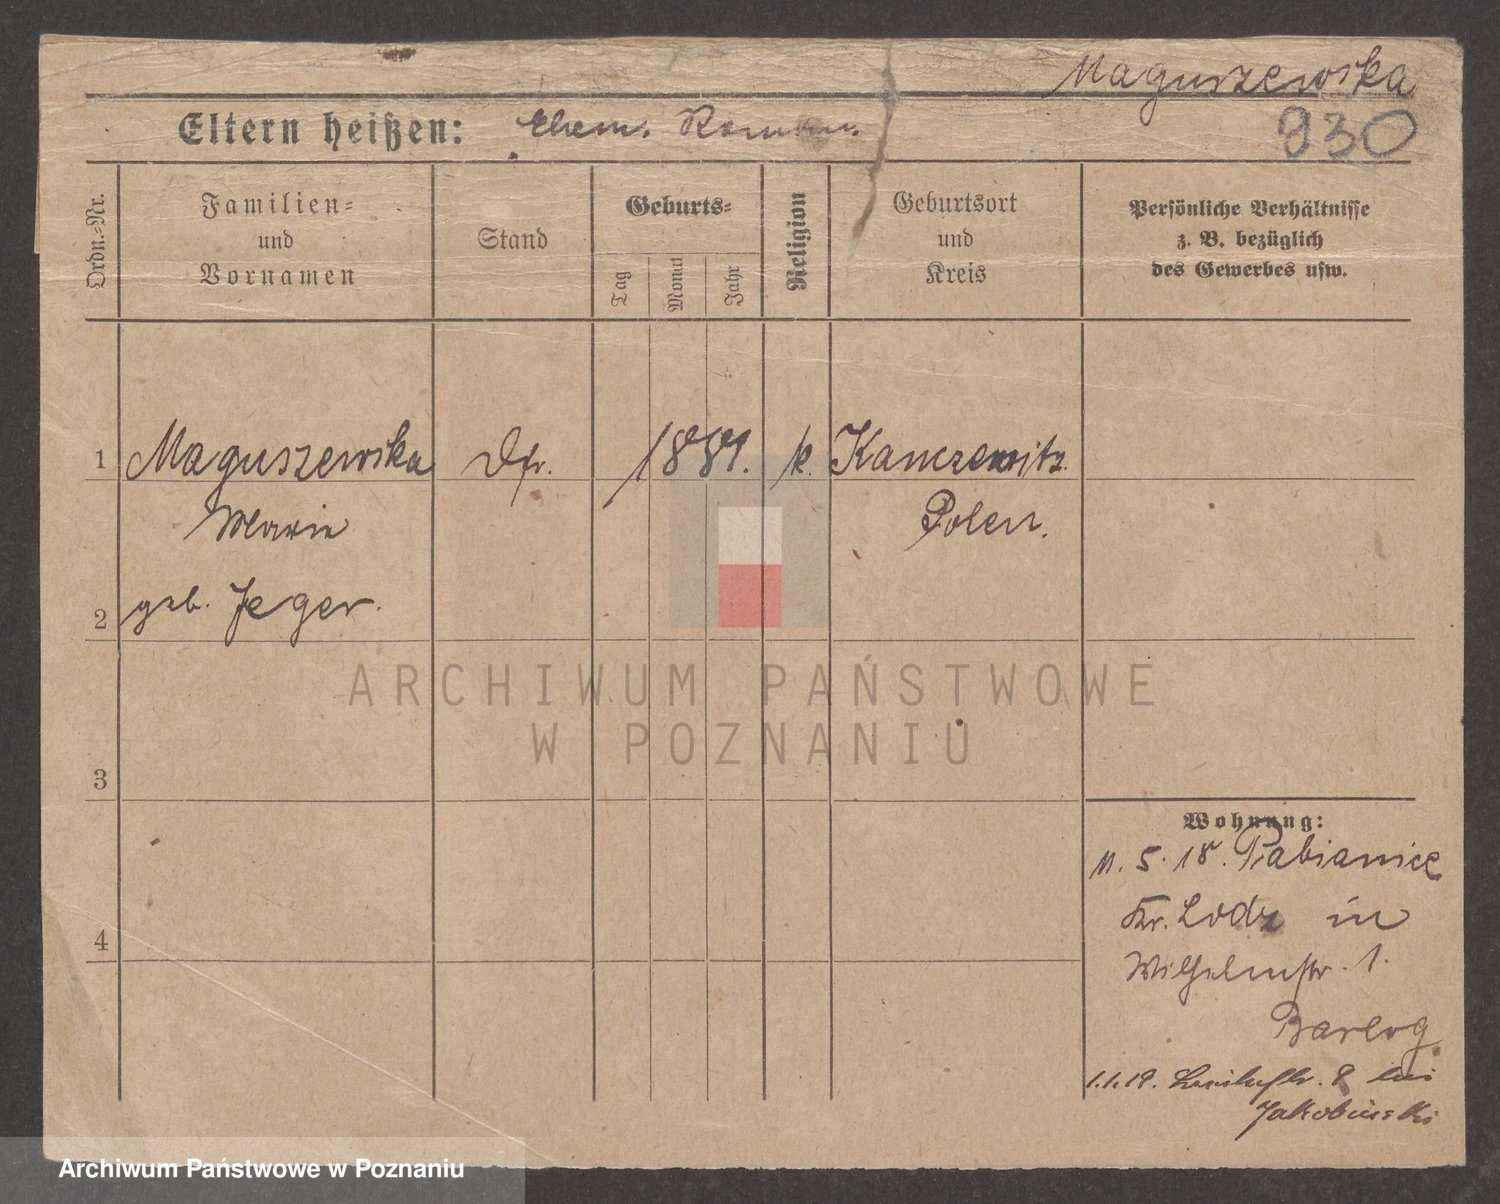 Maguszewska
930
Eltern heißen: Ehem. Roman.
Ordn.-Nr.
Familien-
und
Vornamen
Stand
Geburts-
Tag
Monat
Jahr
Religion
Geburtsort
und
Kreis
Persönliche Verhältnisse
z. B. bezüglich
des Gewerbes usw.
1 Maguszewska 1881. k. Kamzewitz
Marie Polen.
2 geb. Jeger.
3
4
Wohnung:
11. 5. 18. Pabianice
Kr. Lodz in
Wilhelmstr. 1.
Barlog
1.1.19. 8 bei
Jakobinski
ARCHIWUM PAŃSTWOWE
W POZNANIU
Archiwum Państwowe w Poznaniu